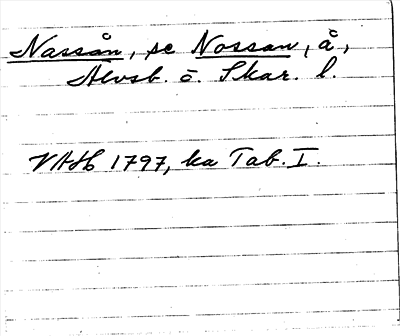 Nassån, se Nossan, å,
Älvsb. o. Skar. l.
VAH 1797, ka Tab. I.